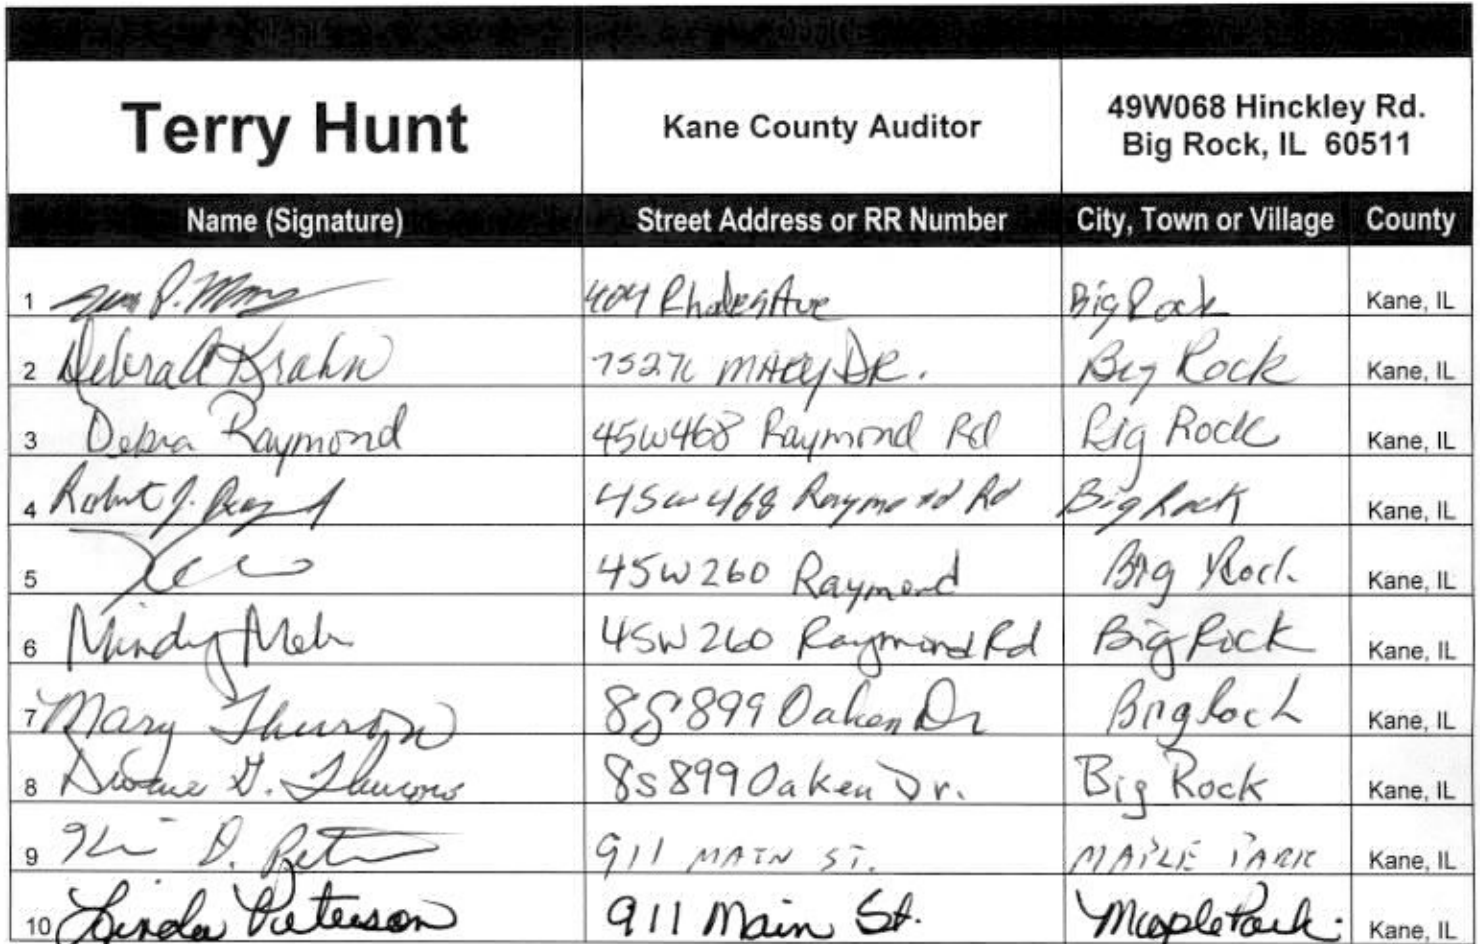 Terry Hunt Kane County Auditor 49W068 Hinckley Rd.
Big Rock, IL 60511
Name (Signature) Street Address or RR Number City, Town or Village County
1 P. 404 Rhodes Ave Big Rock Kane, IL
2 Debra A Krahn Dr. Big Rock Kane, IL
3 Debra Raymond 45W468 Raymond Rd Big Rock Kane, IL
4 Robert J. 45W468 Raymond Rd Big Rock Kane, IL
5 45W260 Raymond Big Rock Kane, IL
6 Mindy 45W260 Raymond Rd Big Rock Kane, IL
7 Mary Thurow 8S899 Oaken Dr Big Rock Kane, IL
8 Duane G. Thurow 8S899 Oaken Dr. Big Rock Kane, IL
9 D. 911 MAIN ST. MAPLE PARK Kane, IL
10 Linda Peterson 911 Main St. Maple Park Kane, IL